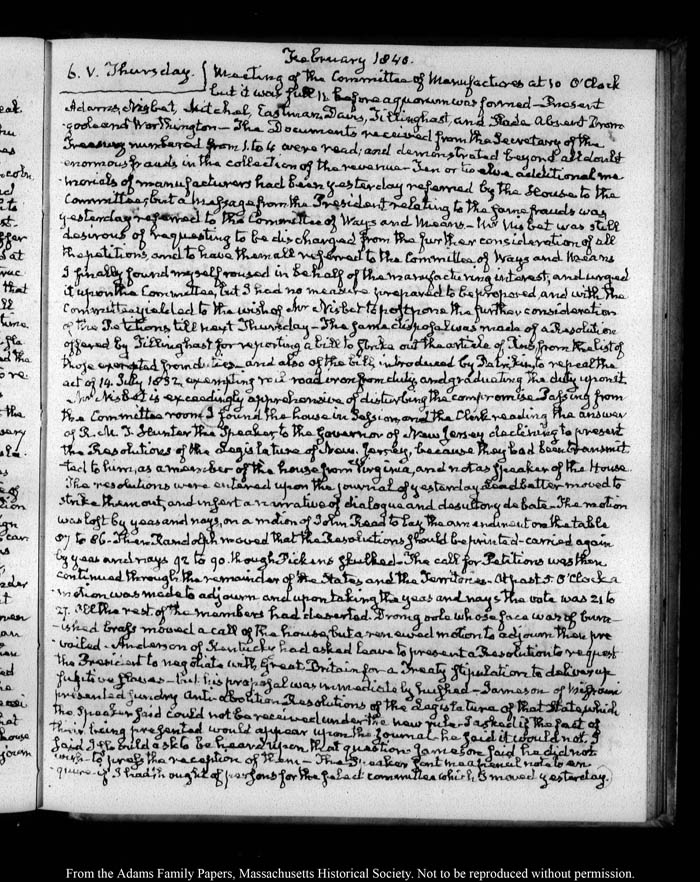 February 1840.
6. V. Thursday. { Meeting of the Committee of Manufactures at 10 O'Clock
but it was full 1/2 before a quorum was formed—Present
Adams, Nisbet, Mitchel, Eastman, Davis, Tillinghast, and Slade Absent Brom-
goole and Worthington—The Documents received from the Secretary of the
Treasury numbered from 1. to 4 were read; and demonstrated beyond all doubt
enormous frauds in the collection of the revenue—Ten or twelve additional me-
morials of manufacturers had been yesterday referred by the House to the
Committee; but a Message from the President relating to the same frauds was
yesterday referred to the Committee of Ways and Means—Mr Nisbet was still
desirous of requesting to be discharged from the further consideration of all
the petitions, and to have them all referred to the Committee of Ways and Means
I finally found myself roused in behalf of the manufacturing interest; and urged
it upon the Committee, but I had no measure prepared to be proposed, and with the
Committee yielded to the wish of Mr Nisbet to postpone the further consideration
of the Petitions till next Thursday—The same disposal was made of a Resolution
offered by Tillinghast for reporting a bill to strike out the article of from the list of
those exempted from duties—and also of the bill, introduced by Petrikin, to repeal the
act of 14. July 1832, exempting rail road iron from duty, and graduating the duty upon it.
Mr Nisbet is exceedingly apprehensive of disturbing the compromise. Passing from
the Committee room I found the house in Session, and the Clerk reading the answer
of R. M. T. Hunter the Speaker to the Governor of New Jersey declining to present
the Resolutions of the Legislature of New. Jersey, because they had been transmit-
ted to him, as a member of the house from Virginia, and not as Speaker of the House.
The resolutions were entered upon the journal of yesterday Leadbetter moved to
strike them out, and insert a narrative of dialogue and desultory debate—The motion
was lost by yeas and nays, on a motion of John Reed to lay the amendment on the table
87 to 86. Then Randolph moved that the Resolutions should be printed—carried again
by yeas and nays 92 to 90. though Pickens skulked—The call for Petitions was then
continued through the remainder of the States and the Territories. At past 5. O'Clock a
motion was made to adjourn and upon taking the yeas and nays the vote was 21 to
27. All the rest of the members had deserted. Dromgoole whose face was of burn-
ished brass moved a call of the house, but a renewed motion to adjourn then pre-
vailed—Anderson of Kentucky had asked leave to present a Resolution to request
the President to negotiate with Great Britain for a Treaty stipulation to deliver up
fugitive slaves—but his proposal was immediately hushed—Jameson of Missouri
presented sundry Anti-abolition Resolutions of the Legislature of that State, which
the Speaker said could not be received under the new rule. I asked if the fact of
their being presented would appear upon the journal—he said it would not, I
said I should ask to be heard upon that question. Jameson said he did not
wish to press the reception of them—The Speaker sent me a pencil note to en-
quire if I had thought of persons for the select committee which I moved yesterday.
From the Adams Family Papers, Massachusetts Historical Society. Not to be reproduced without permission.